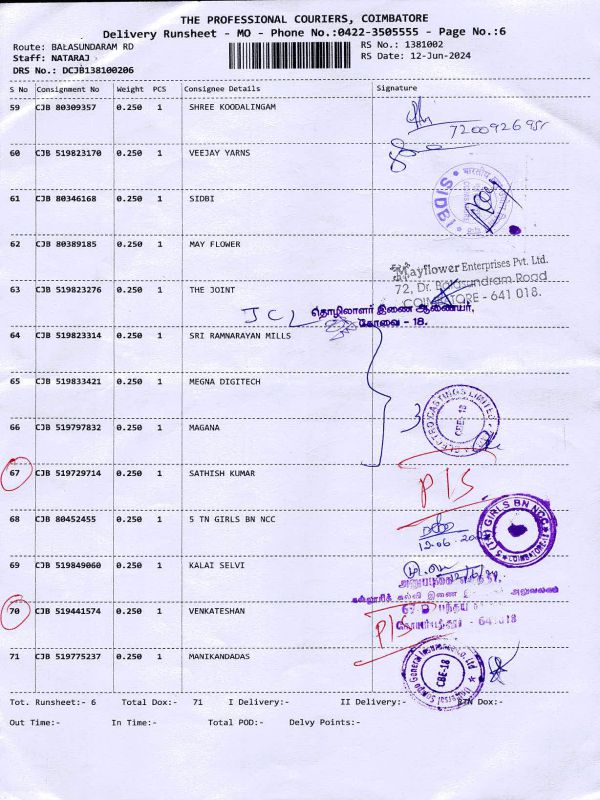 THE PROFESSIONAL COURIERS, COIMBATORE
Delivery Runsheet - MO - Phone No.:0422-3505555 - Page No.:6
Route: BALASUNDARAM RD
RS No.: 1381002
Staff: NATARAJ
RS Date: 12-Jun-2024
DRS No.: DCJB138100206
S No Consignment No Weight PCS Consignee Details Signature
59 CJB 80309357 0.250 1 SHREE KOODALINGAM
60 CJB 519823170 0.250 1 VEEJAY YARNS
61 CJB 80346168 0.250 1 SIDBI
SIDBI
62 CJB 80389185 0.250 1 MAY FLOWER
Mayflower Enterprises Pvt. Ltd.
72, Dr. Balasundram Road
COIMBATORE - 641 018.
63 CJB 519823276 0.250 1 THE JOINT
JCL
தொழிலாளர் இணை ஆணையர்,
கோவை - 18.
64 CJB 519823314 0.250 1 SRI RAMNARAYAN MILLS
65 CJB 519833421 0.250 1 MEGNA DIGITECH
66 CJB 519797832 0.250 1 MAGANA
3
CBE-18
67 CJB 519729714 0.250 1 SATHISH KUMAR
P/S
68 CJB 80452455 0.250 1 5 TN GIRLS BN NCC
5 (TN) GIRLS BN NCC
COIMBATORE
69 CJB 519849060 0.250 1 KALAI SELVI
70 CJB 519441574 0.250 1 VENKATESHAN
P/S
71 CJB 519775237 0.250 1 MANIKANDADAS
Universal Sompo General Insurance Co. Ltd
CBE-18
Tot. Runsheet:- 6 Total Dox:- 71 I Delivery:- II Delivery:- RTN Dox:-
Out Time:- In Time:- Total POD:- Delvy Points:-